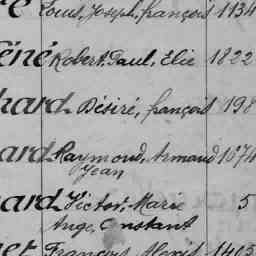 re Louis, Joseph, françois 1134
éné Robert, Paul, Elie 1822
hard Désiré, françois 198
ard Raymond, Armand 1674
Jean
hard Victor, Marie 5
Ange, Constant
et François Alexis 1405